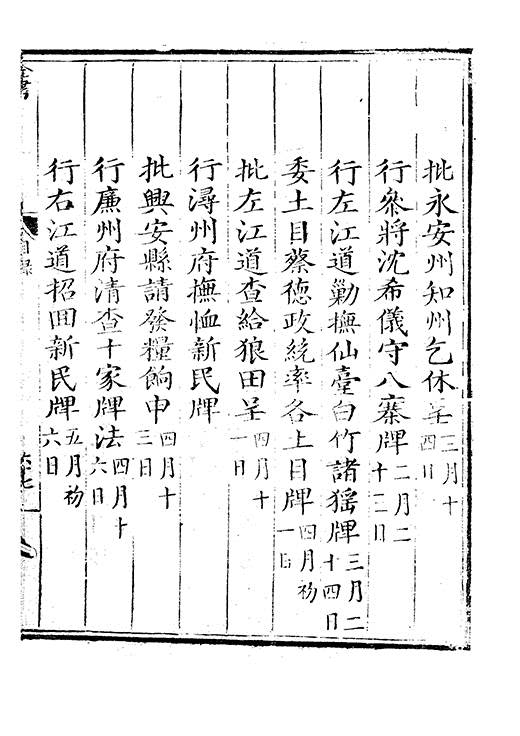 批永安州知州乞休呈三月十四日
行參將沈希儀守八寨牌二月二十二日
行左江道勦撫仙臺白竹諸猺牌三月二十四日
委土目蔡德政統率各土目牌四月初一日
批左江道查給狼田呈四月十一日
行潯州府撫恤新民牌
批興安縣請發糧餉申四月十三日
行廉州府清查十家牌法四月十六日
行右江道招回新民牌五月初六日
目錄